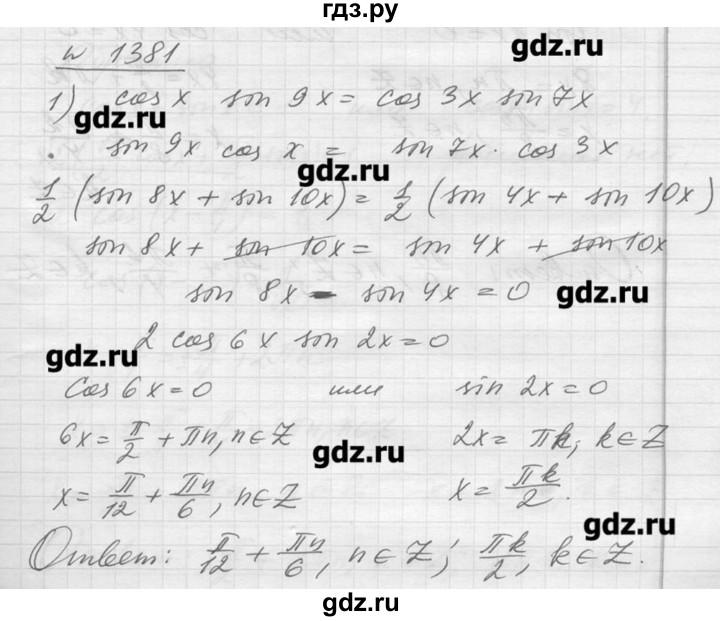 гдз.ру
№ 1381
gdz.ru
1) cos x sin 9x = cos 3x sin 7x
gdz.ru
. sin 9x cos x = sin 7x · cos 3x
gdz.ru
1/2 (sin 8x + sin 10x) = 1/2 (sin 4x + sin 10x)
sin 8x + sin 10x = sin 4x + sin 10x
sin 8x - sin 4x = 0
gdz.ru
2 cos 6x sin 2x = 0
gdz.ru
cos 6x = 0 или sin 2x = 0
6x = π/2 + πn, n ∈ Z 2x = πk, k ∈ Z
gdz.ru
x = π/12 + πn/6, n ∈ Z x = πk/2.
gdz.ru
Ответ: π/12 + πn/6, n ∈ Z; πk/2, k ∈ Z.
gdz.ru